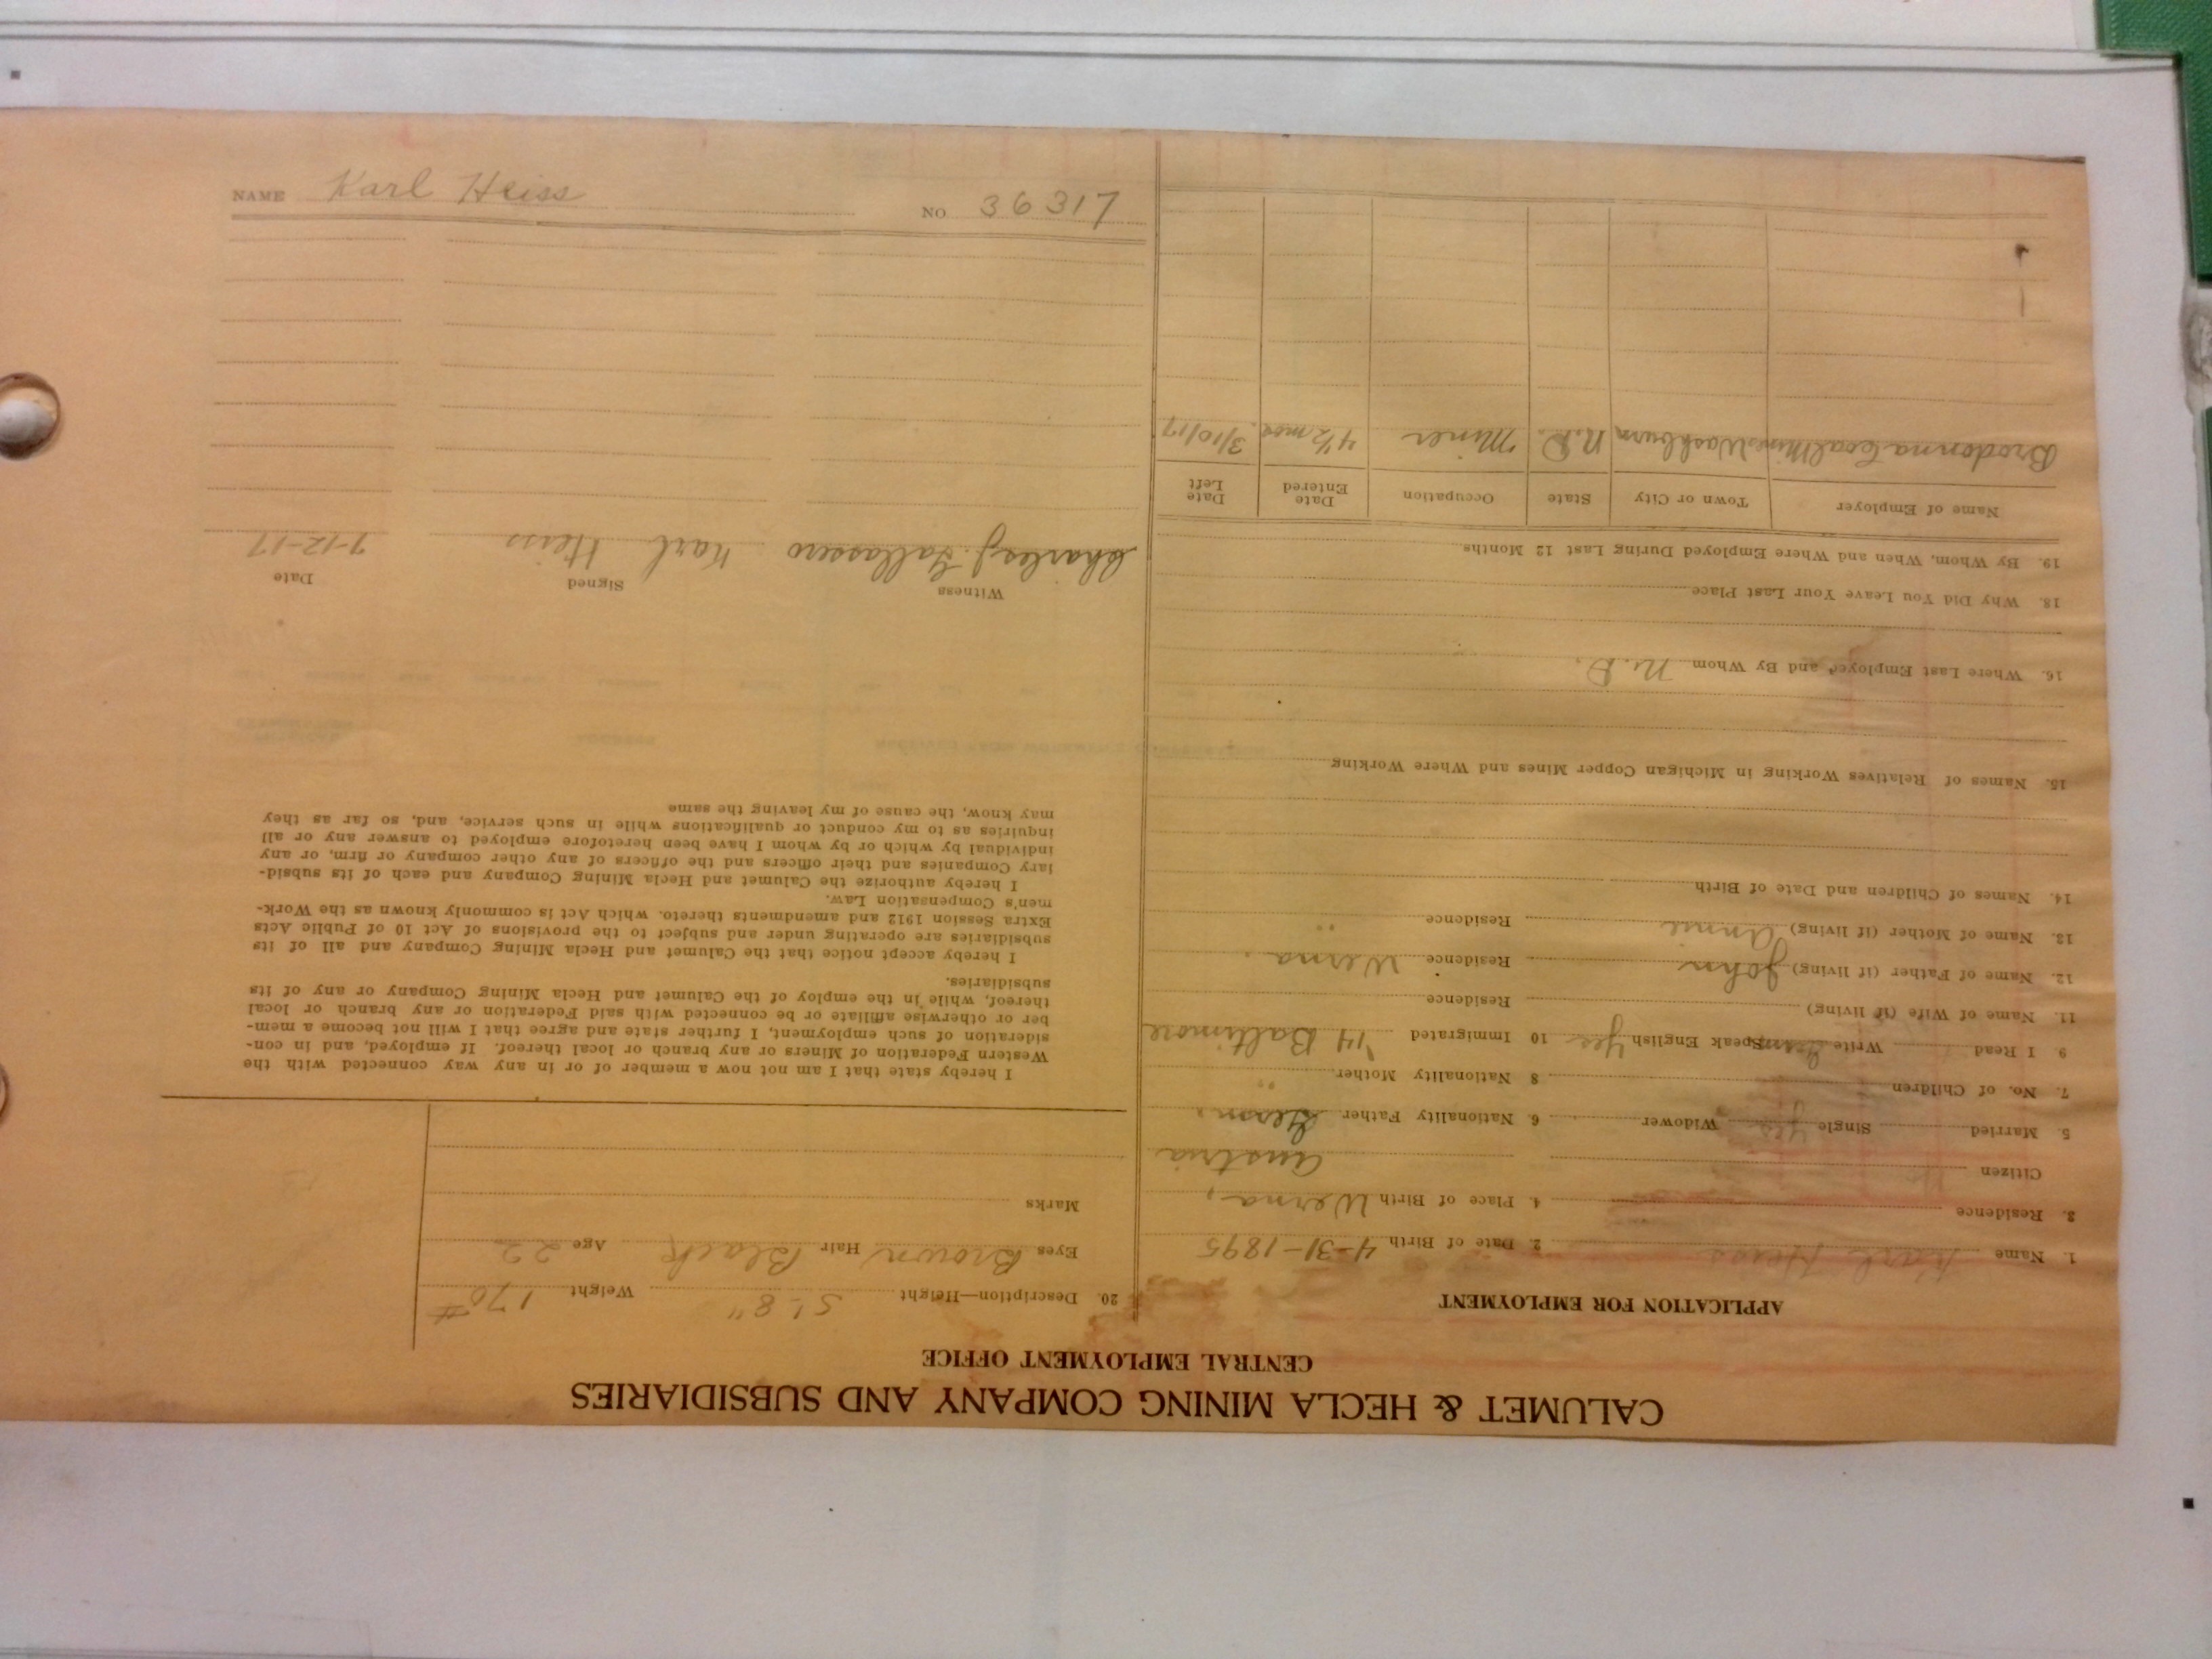 CALUMET & HECLA MINING COMPANY AND SUBSIDIARIES
CENTRAL EMPLOYMENT OFFICE
APPLICATION FOR EMPLOYMENT
1. Name Karl Heiss 2. Date of Birth 4-31-1895
3. Residence 4. Place of Birth Werna,
Citizen No Austria
5. Married Single Yes Widower 6. Nationality Father Germ.
7. No. of Children 8 Nationality Mother "
9 I Read Write Germ Speak English Yes 10 Immigrated '14 Baltimore
11. Name of Wife (if living) Residence
12. Name of Father (if living) John Residence Werna.
13. Name of Mother (if living) Annie Residence "
14. Names of Children and Date of Birth
15. Names of Relatives Working in Michigan Copper Mines and Where Working
16. Where Last Employed and By Whom N.D.
18. Why Did You Leave Your Last Place
19. By Whom, When and Where Employed During Last 12 Months
Name of Employer Town or City State Occupation Date Entered Date Left
Coal Mine Washburn N.D. Miner 4½ mos. 3/10/17
20. Description—Height 5'-8" Weight 170#
Eyes Brown Hair Black Age 22
Marks
I hereby state that I am not now a member of or in any way connected with the
Western Federation of Miners or any branch or local thereof. If employed, and in con-
sideration of such employment, I further state and agree that I will not become a mem-
ber or otherwise affiliate or be connected with said Federation or any branch or local
thereof, while in the employ of the Calumet and Hecla Mining Company or any of its
subsidiaries.
I hereby accept notice that the Calumet and Hecla Mining Company and all of its
subsidiaries are operating under and subject to the provisions of Act 10 of Public Acts
Extra Session 1912 and amendments thereto. which Act is commonly known as the Work-
men's Compensation Law.
I hereby authorize the Calumet and Hecla Mining Company and each of its subsid-
iary Companies and their officers and the officers of any other company or firm, or any
individual by which or by whom I have been heretofore employed to answer any or all
inquiries as to my conduct or qualifications while in such service, and, so far as they
may know, the cause of my leaving the same
Witness Signed Date
Charles J. Karl Heiss 7-12-17
NAME Karl Heiss NO 36317